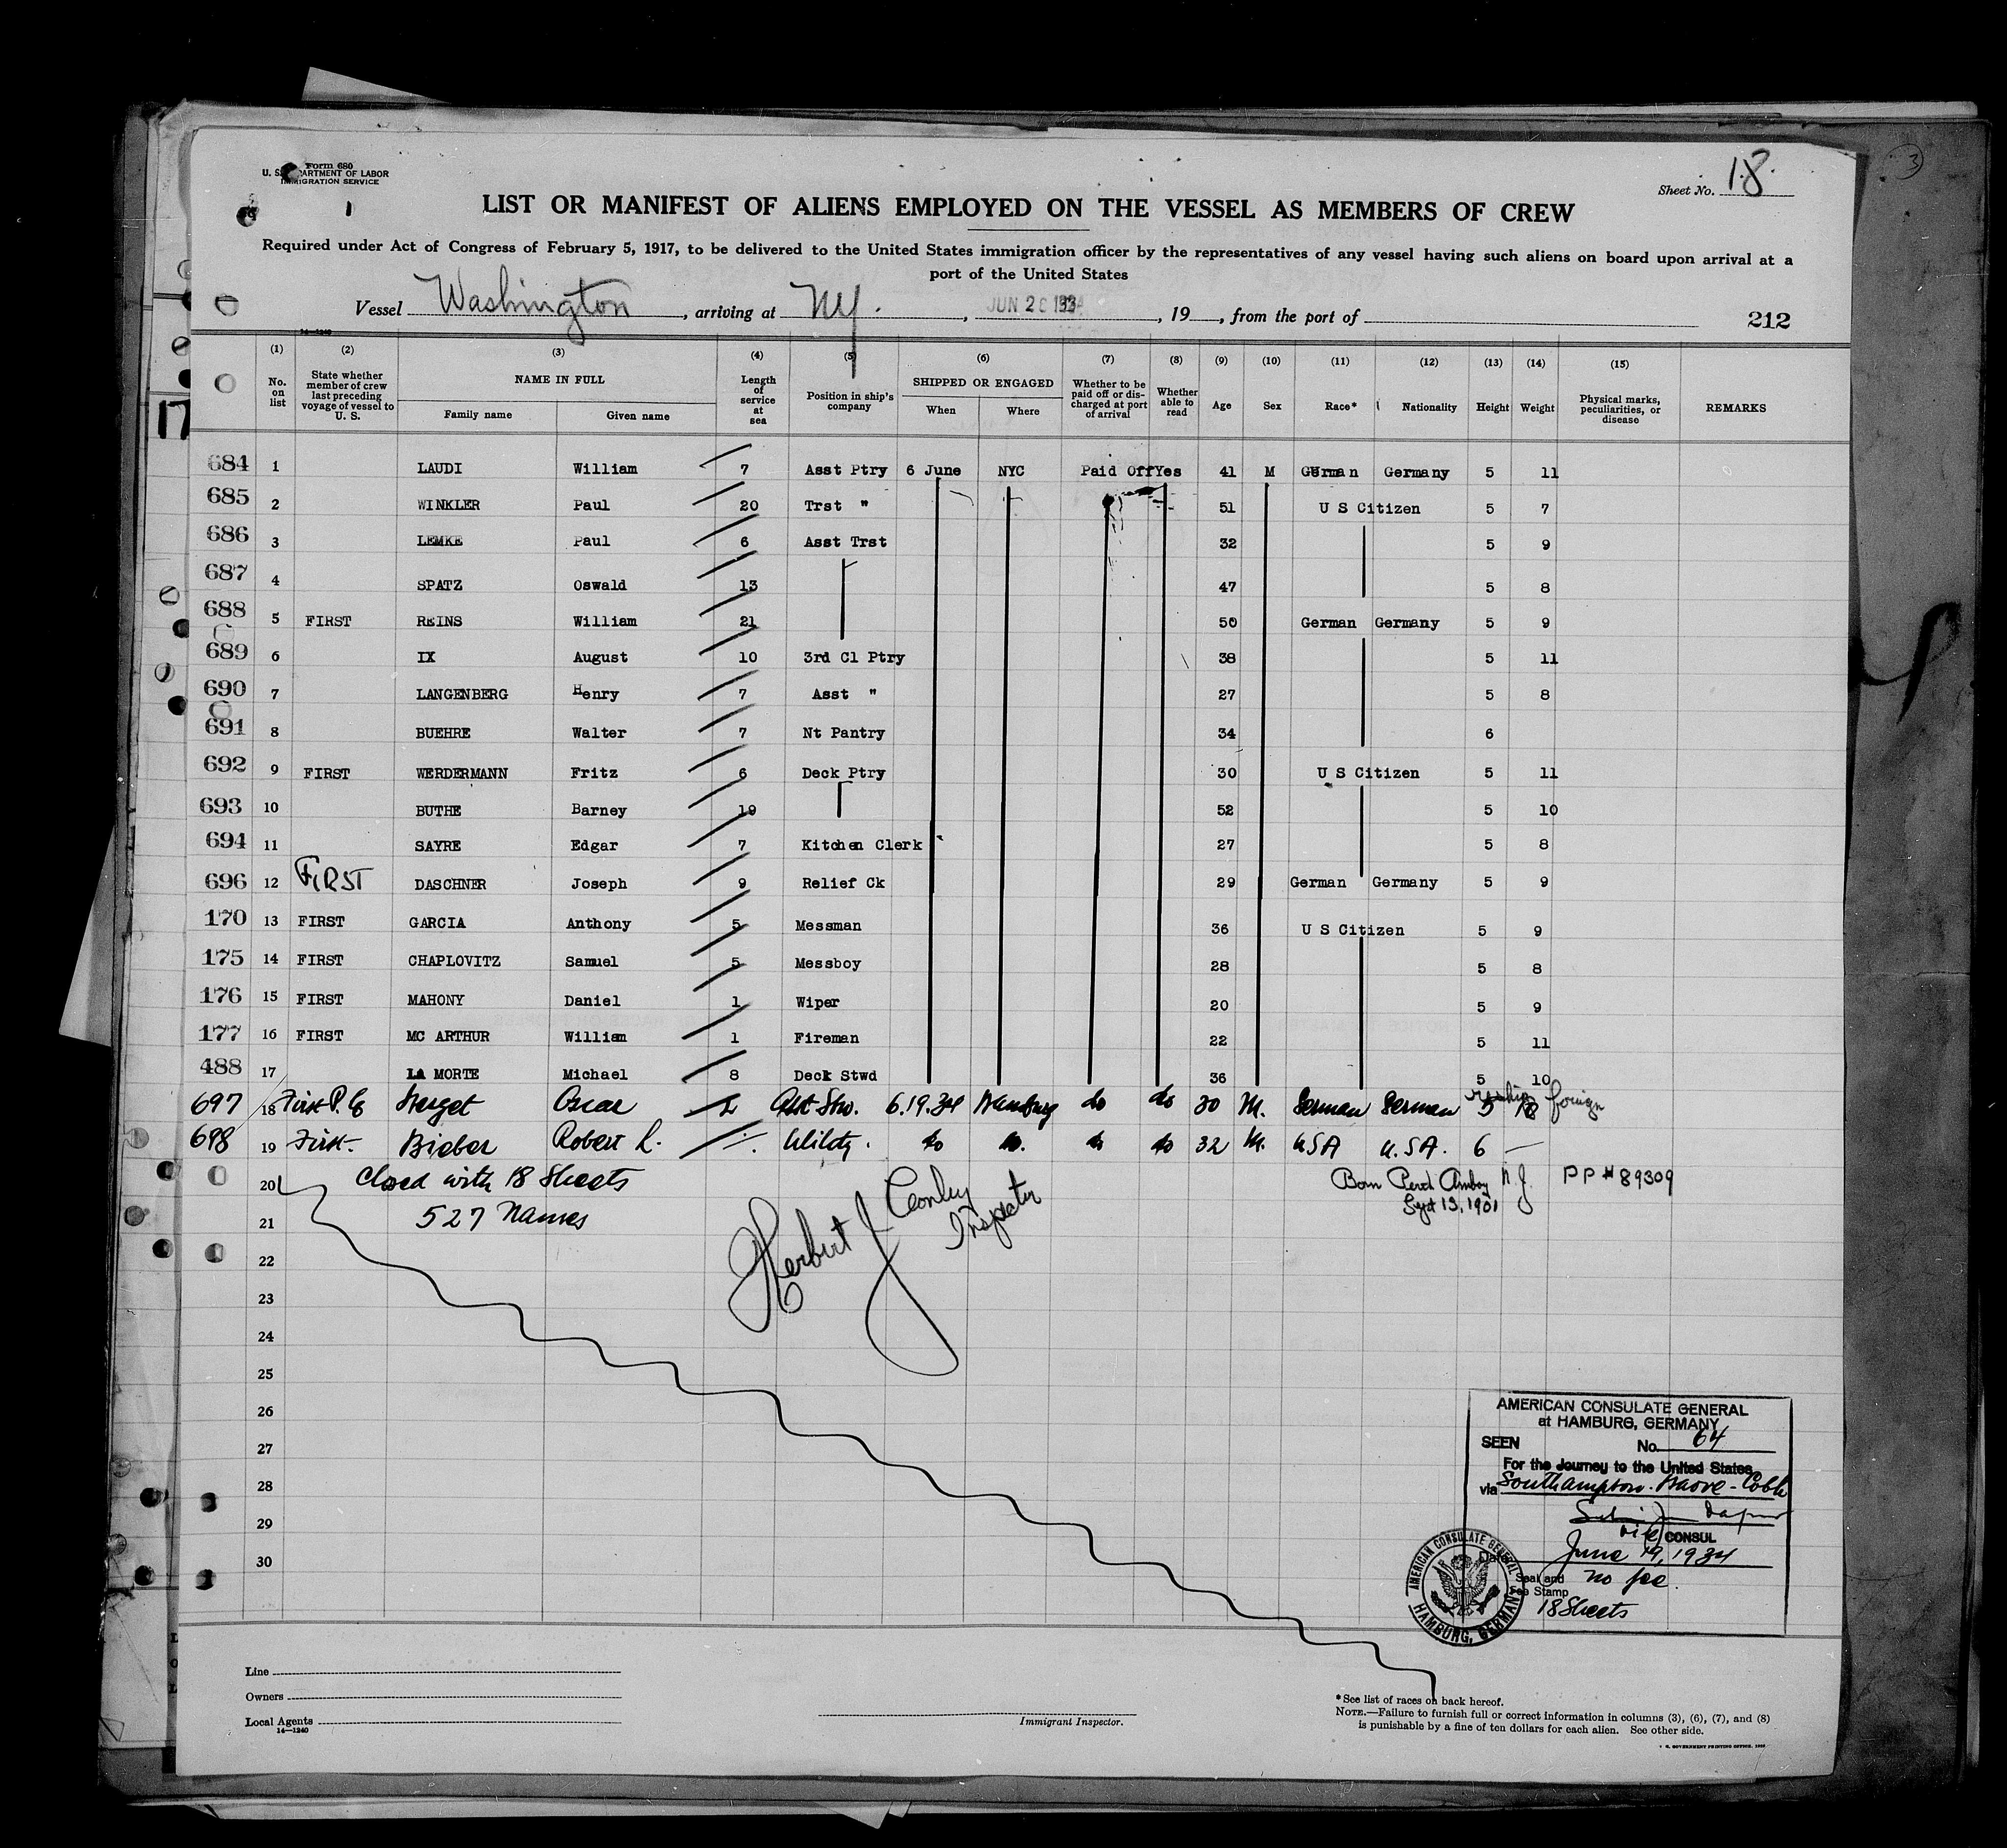 Form 680
U. S. DEPARTMENT OF LABOR
IMMIGRATION SERVICE
Sheet No. 18.
LIST OR MANIFEST OF ALIENS EMPLOYED ON THE VESSEL AS MEMBERS OF CREW
Required under Act of Congress of February 5, 1917, to be delivered to the United States immigration officer by the representatives of any vessel having such aliens on board upon arrival at a
port of the United States
Vessel Washington, arriving at NY., JUN 2, 19, from the port of
212
14—1240
17
(1) (2) (3) (4) (5) (6) (7) (8) (9) (10) (11) (12) (13) (14) (15)
No. on list State whether member of crew last preceding voyage of vessel to U. S. NAME IN FULL Family name Given name Length of service at sea Position in ship's company SHIPPED OR ENGAGED When Where Whether to be paid off or discharged at port of arrival Whether able to read Age Sex Race* Nationality Height Weight Physical marks, peculiarities, or disease REMARKS
684 1 LAUDI William 7 Asst Ptry 6 June NYC Paid Off Yes 41 M German Germany 5 11
685 2 WINKLER Paul 20 Trst " 51 U S Citizen 5 7
686 3 LEMKE Paul 6 Asst Trst 32 5 9
687 4 SPATZ Oswald 13 47 5 8
688 5 FIRST REINS William 21 50 German Germany 5 9
689 6 IX August 10 3rd Cl Ptry 38 5 11
690 7 LANGENBERG Henry 7 Asst " 27 5 8
691 8 BUEHRE Walter 7 Nt Pantry 34 6
692 9 FIRST WERDERMANN Fritz 6 Deck Ptry 30 U S Citizen 5 11
693 10 BUTHE Barney 19 52 5 10
694 11 SAYRE Edgar 7 Kitchen Clerk 27 5 8
696 12 FIRST DASCHNER Joseph 9 Relief Ck 29 German Germany 5 9
170 13 FIRST GARCIA Anthony 5 Messman 36 U S Citizen 5 9
175 14 FIRST CHAPLOVITZ Samuel 5 Messboy 28 5 8
176 15 FIRST MAHONY Daniel 1 Wiper 20 5 9
177 16 FIRST MC ARTHUR William 1 Fireman 22 5 11
488 17 LA MORTE Michael 8 Deck Stwd 36 5 10
697 18 First Oscar Asst Stw. 6.19.34 Hamburg do do 30 M. German German 5 foreign
698 19 First. Bieber Robert L. Utility. do do. do do 32 M. USA U.SA. 6 —
20 Closed with 18 Sheets Born Perth Amboy N.J. PP # 89309
Sept 13, 1901
21 527 Names
Herbert J Conley
Inspector
22
23
24
25
26
27
28
29
30
AMERICAN CONSULATE GENERAL
at HAMBURG, GERMANY
SEEN No. 64
For the Journey to the United States
via Southampton - Havre - Cobh
Vice CONSUL
Date June 19, 1934
Seal and
Fee Stamp no fee.
18 Sheets
AMERICAN CONSULATE GENERAL
HAMBURG, GERMANY
Line
Owners
Local Agents
14—1240
Immigrant Inspector.
*See list of races on back hereof.
NOTE.—Failure to furnish full or correct information in columns (3), (6), (7), and (8)
is punishable by a fine of ten dollars for each alien. See other side.